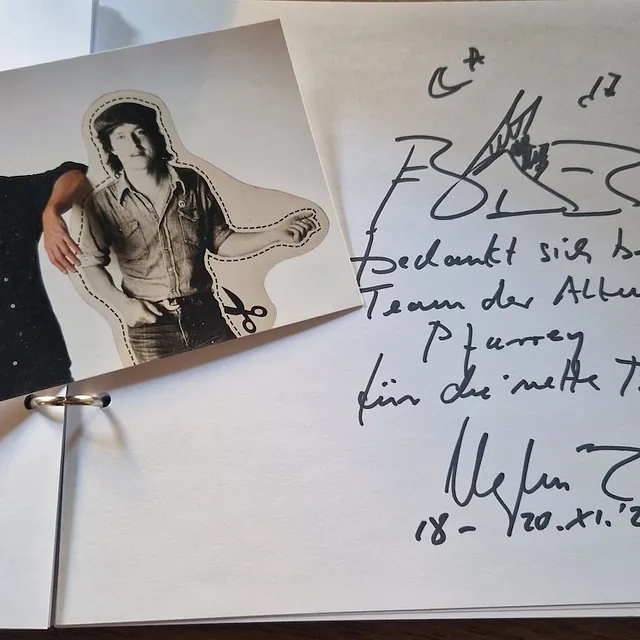 bedankt sich b
Team der Alten
Pfarrey
für die nette T
18 - 20.XI.'2